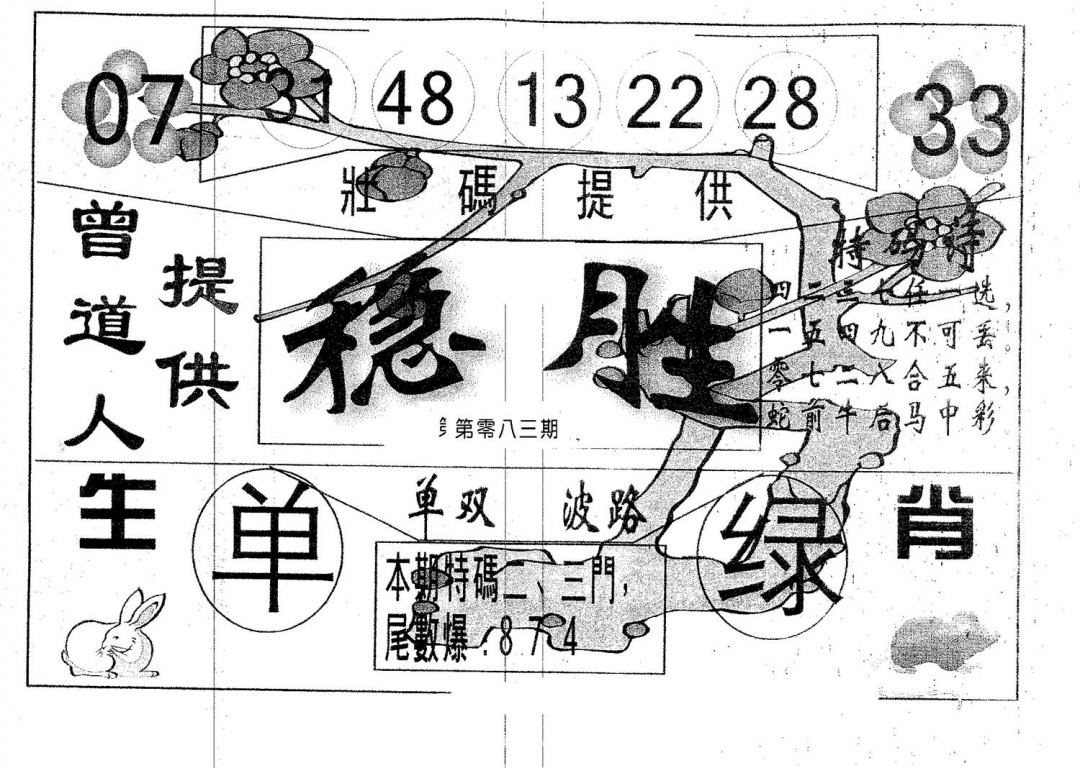 07 31 48 13 22 28 33
壯碼提供
曾道人
提供
稳胜
第零八三期
特码诗
四二三七任一选，
一五四九不可丢。
零七二八合五来，
蛇前牛后马中彩
生肖
单
单双 波路
绿
本期特碼二、三門，
尾數爆：874